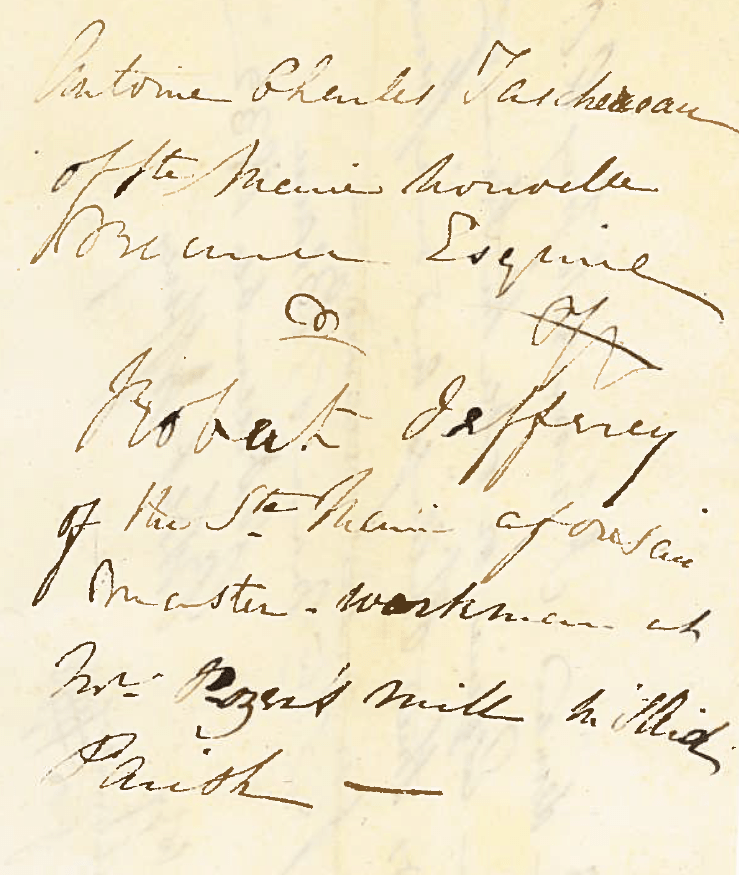 Antoine Charles Taschereau
of Ste Marie Nouvelle
Beauce Esquire
&
Robert Jefferey
of the Ste Marie aforesaid
Master-workman at
Mr Rogers mill in said
Parish —